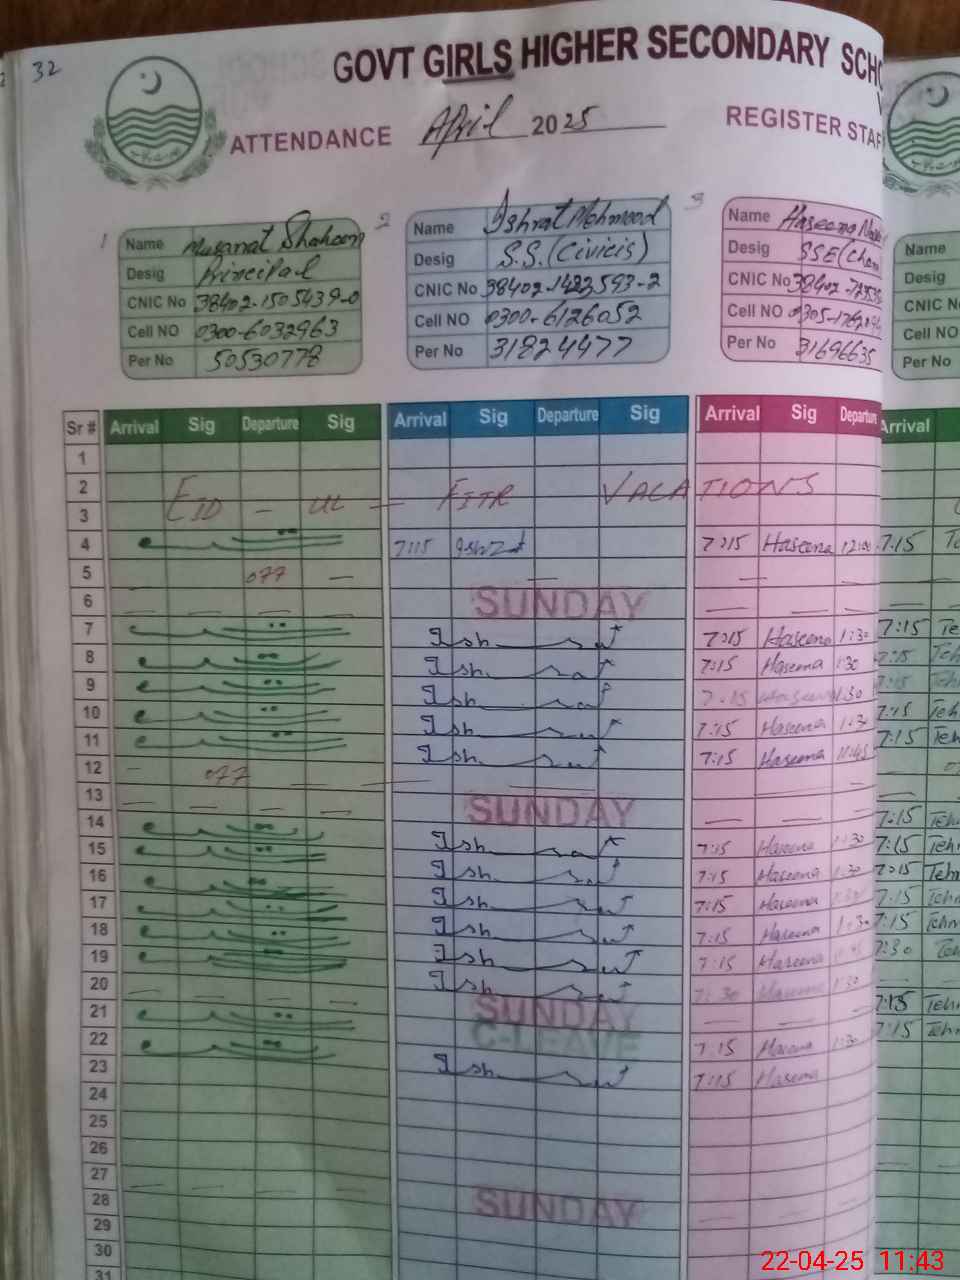 32
GOVT GIRLS HIGHER SECONDARY
ATTENDANCE April 2025 REGISTER
1
Name Musarrat Shaheen
Desig Principal
CNIC No 38402-1505439-0
Cell NO 0300-6032963
Per No 50530778
2
Name Ishrat Mehmood
Desig S.S. (Civicis)
CNIC No 38402-1422593-2
Cell NO 0300-6126052
Per No 31824477
3
Name Haseena
Desig SSE
CNIC No 38402
Cell NO
Per No 31696635
Name
Desig
CNIC
Cell NO
Per No
Sr # Arrival Sig Departure Sig Arrival Sig Departure Sig Arrival Sig Departure Arrival
1
2 EID - UL - FITR VACATIONS
3
4 7:15 7:15 Haseena 12:00 7:15
5 off —
6 SUNDAY
7 Ish 7:15 Haseena 1:30 7:15
8 Ish 7:15 Haseena 1:30 7:15
9 Ish 7:15 Haseena 1:30 7:15
10 Ish 7:15 Haseena 1:30 7:15
11 Ish 7:15 Haseena 11:45 7:15
12 off
13 SUNDAY
14 Ish 7:15 Haseena 1:30 7:15
15 Ish 7:15 Haseena 1:30 7:15
16 Ish 7:15 Haseena 7:15
17 Ish 7:15 Haseena 1:30 7:15
18 Ish 7:15 Haseena 7:15
19 Ish 7:30 Haseena 1:30 7:30
20 SUNDAY
21 C-LEAVE 7:15 Haseena 1:30 7:15
22 Ish 7:15 Haseena 7:15
23
24
25
26
27
28 SUNDAY
29
30
31
22-04-25 11:43